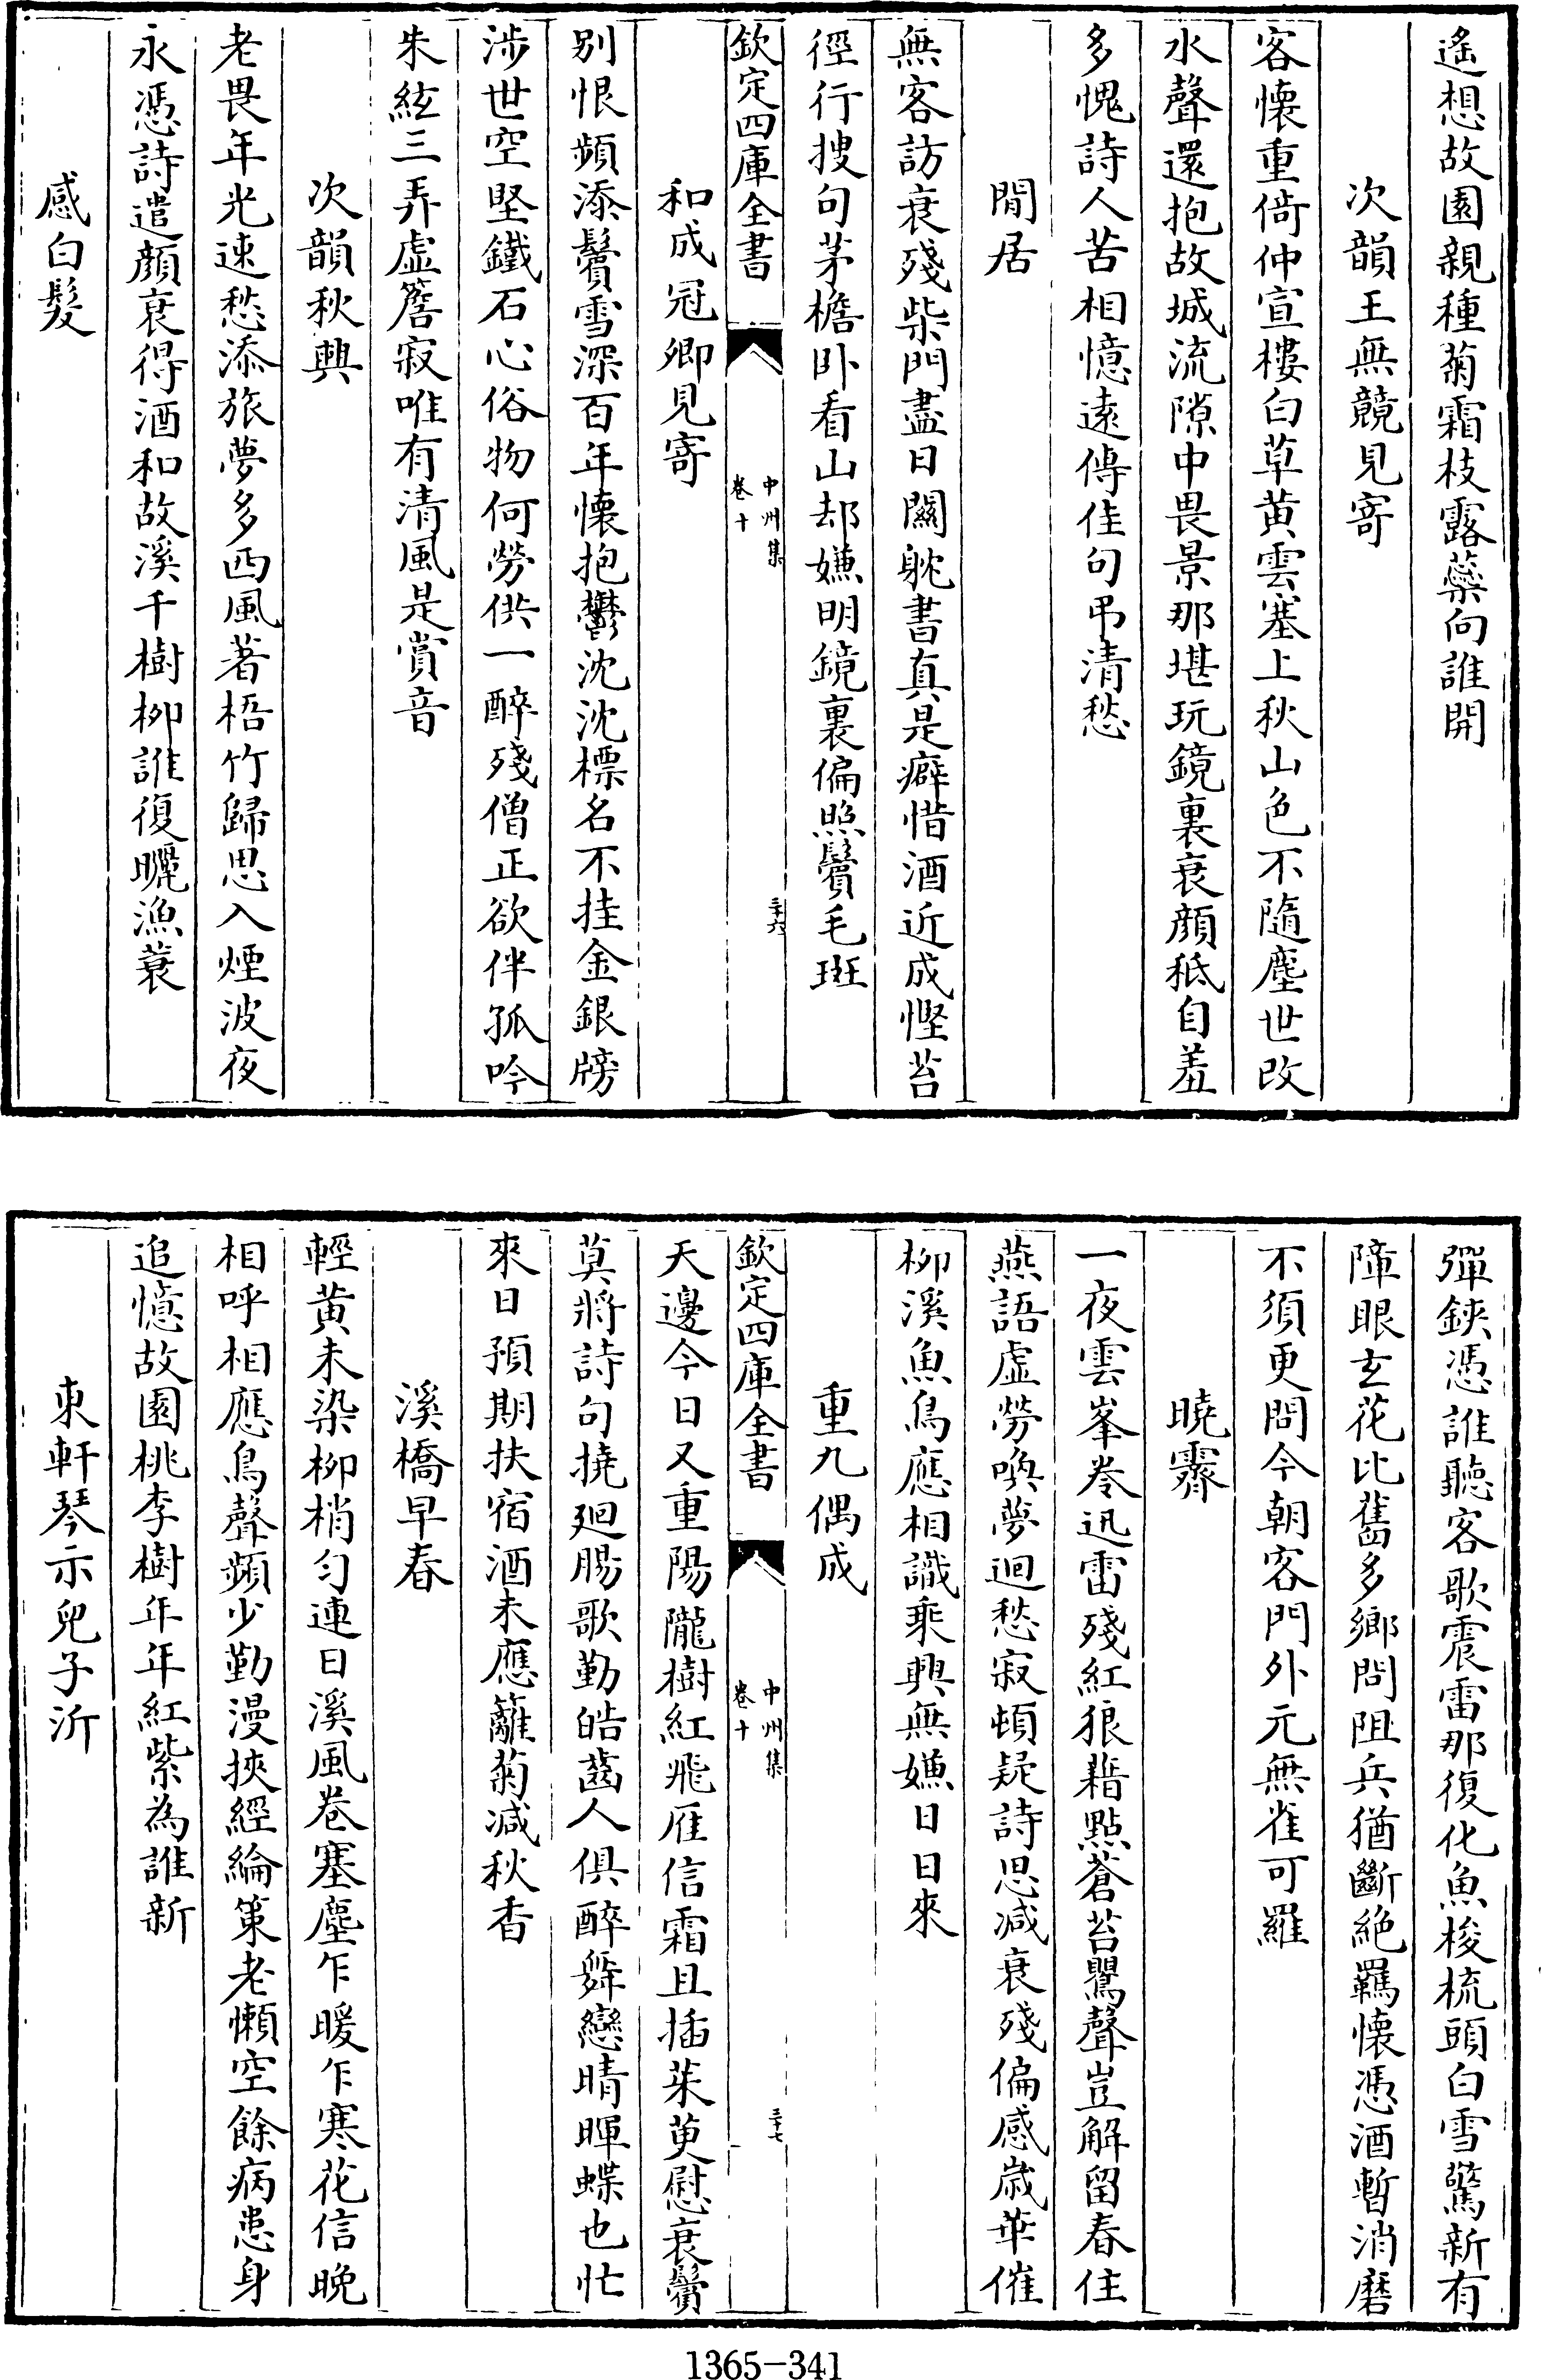 遙想故園親種菊霜枝露蘂向誰開
次韻王無競見寄
客懷重倚仲宣樓白草黄雲塞上秋山色不隨塵世改
水聲還抱故城流隙中畏景那堪玩鏡裏衰顔秪自羞
多愧詩人苦相憶遠傳佳句弔清愁
閒居
無客訪衰殘柴門盡日關躭書真是癖惜酒近成慳苔
徑行搜句茅檐卧看山却嫌明鏡裏偏照鬢毛斑
欽定四庫全書
中州集
卷十
三十六
和成冠卿見寄
别恨頻添鬢雪深百年懷抱鬱沈沈標名不挂金銀牓
涉世空堅鐵石心俗物何勞供一醉殘僧正欲伴孤吟
朱絃三弄虛簷寂唯有清風是賞音
次韻秋興
老畏年光速愁添旅夢多西風著梧竹歸思入煙波夜
永憑詩遣顔衰得酒和故溪千樹柳誰復曬漁蓑
感白髮
彈鋏憑誰聽客歌震雷那復化魚梭梳頭白雪驚新有
障眼玄花比舊多鄉問阻兵猶斷絶羈懷憑酒暫消磨
不須更問今朝客門外元無雀可羅
曉霽
一夜雲峯卷迅雷殘紅狼藉點蒼苔鸎聲豈解留春住
燕語虛勞喚夢迴愁寂頓疑詩思减衰殘偏感歲華催
柳溪魚鳥應相識乘興無嫌日日來
重九偶成
欽定四庫全書
中州集
卷十
三十七
天邊今日又重陽隴樹紅飛雁信霜且插茱萸慰衰鬢
莫將詩句撓廻腸歌勤皓齒人俱醉舞戀晴暉蝶也忙
來日預期扶宿酒未應籬菊减秋香
溪橋早春
輕黄未染柳梢勻連日溪風卷塞塵乍暖乍寒花信晚
相呼相應鳥聲頻少勤漫挾經綸策老懶空餘病患身
追憶故園桃李樹年年紅紫為誰新
東軒琴示兒子沂
1365-341